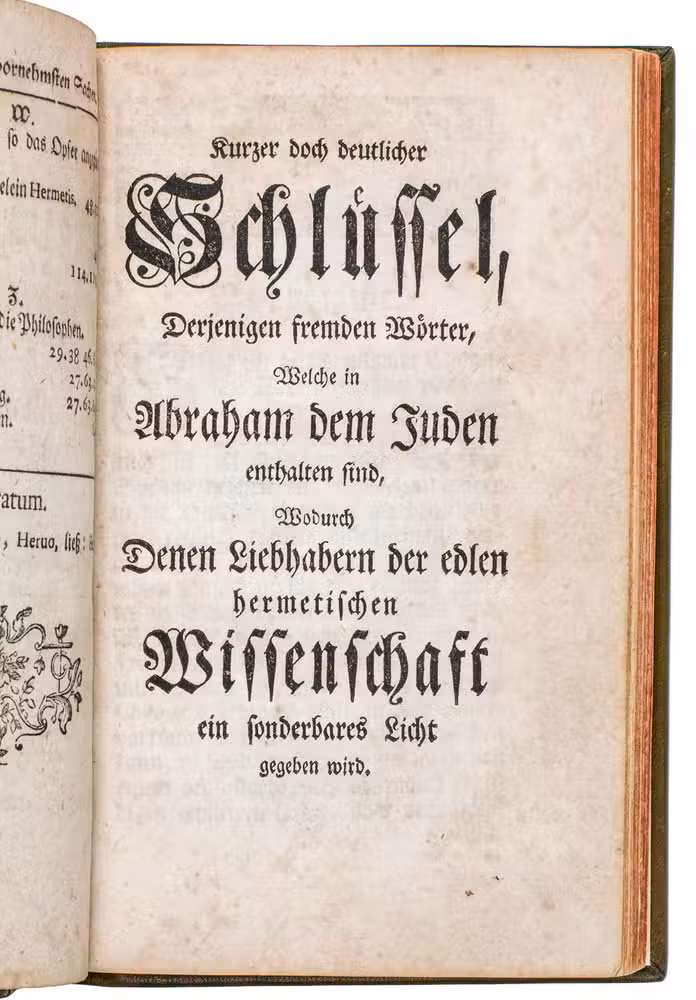 vornehmsten Sachen
W.
so das Opfer
elein Hermetis. 48.
114.1
Z.
die Philosophen.
29.38 46.
27.63.
g. 27.63.
n.
ratum.
, Heruo, ließ:
Kurzer doch deutlicher
Schlüssel,
Derjenigen fremden Wörter,
Welche in
Abraham dem Juden
enthalten sind,
Wodurch
Denen Liebhabern der edlen
hermetischen
Wissenschaft
ein sonderbares Licht
gegeben wird.